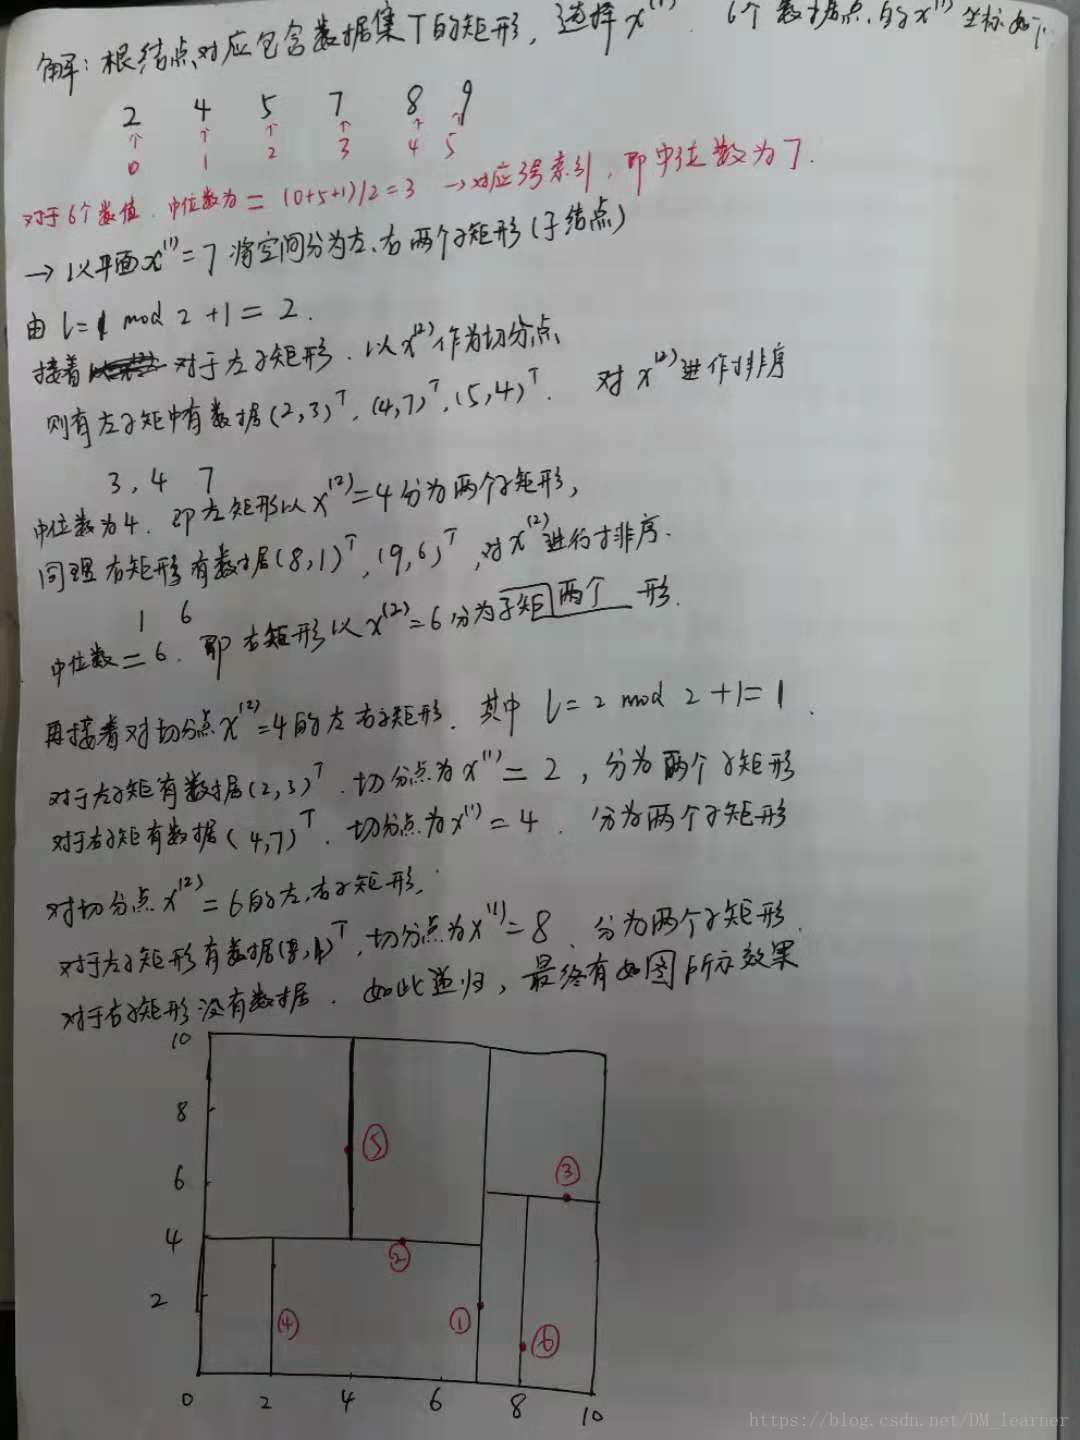 解：根结点对应包含数据集T的矩形，选择x⁽¹⁾. 6个数据点的x⁽¹⁾坐标如下
2 4 5 7 8 9
↑ ↑ ↑ ↑ ↑ ↑
0 1 2 3 4 5
对于6个数值. 中位数为 = (0+5+1)/2=3 →对应3号索引，即中位数为7.
→以平面x⁽¹⁾=7将空间分为左、右两个子矩形(子结点)
由 l=1 mod 2 +1=2.
接着 对于左子矩形. 以x⁽²⁾作为切分点
则有左子矩中有数据(2,3)ᵀ, (4,7)ᵀ, (5,4)ᵀ. 对x⁽²⁾进作排序
3, 4 7
中位数为4. 即左矩形以x⁽²⁾=4分为两个子矩形,
同理右矩形有数据(8,1)ᵀ, (9,6)ᵀ, 对x⁽²⁾进行排序.
1 6
中位数=6. 即右矩形以x⁽²⁾=6分为子矩两个形.
再接着对切分点x⁽²⁾=4的左右子矩形. 其中 l=2 mod 2+1=1.
对于左子矩有数据(2,3)ᵀ. 切分点为x⁽¹⁾=2, 分为两个子矩形
对于右子矩有数据(4,7)ᵀ. 切分点为x⁽¹⁾=4. 分为两个子矩形
对切分点x⁽²⁾=6的左、右子矩形.
对于左子矩形有数据(8,1)ᵀ, 切分点为x⁽¹⁾=8. 分为两个子矩形.
对于右子矩形没有数据. 如此递归，最终有如图所示效果
10
8
⑤
6
③
4
②
2
④ ① ⑥
0 2 4 6 8 10
https://blog.csdn.net/DM_learner